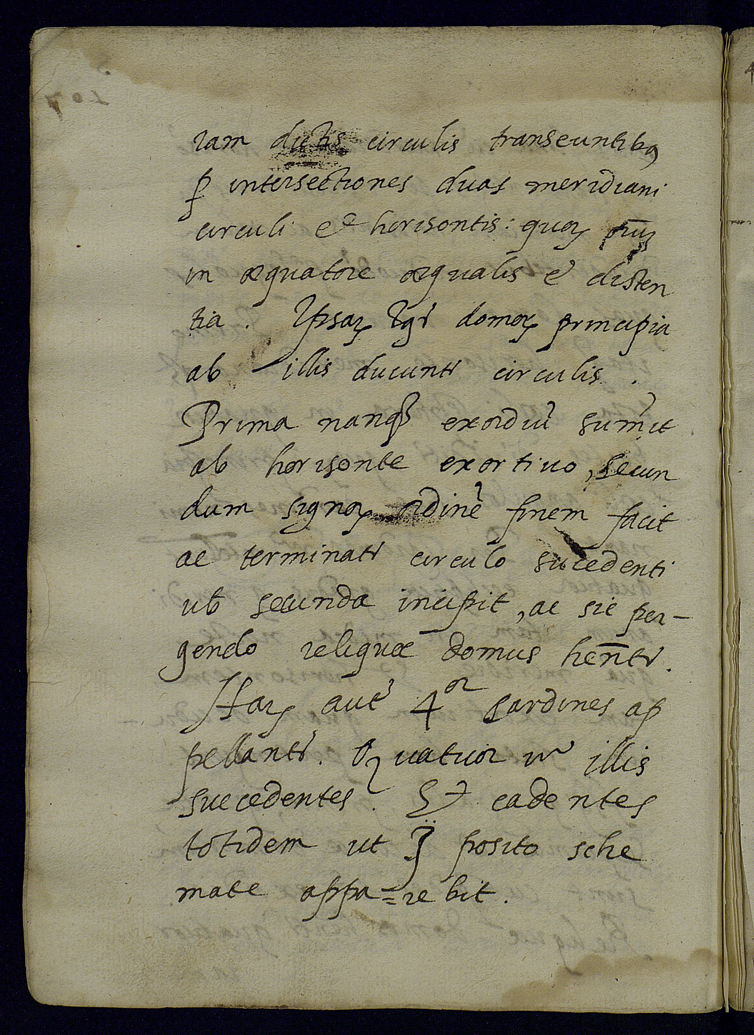 iam dictis circulis transeuntibꝰ
ꝑ intersectiones duas meridiani
circuli et horisontis: quoꝝ
in æquatore æqualis ẽ disten
tia. Ipsaꝝ igr̃ domoꝝ principia
ab illis ducuntr̃ circulis.
Prima nanqꝫ exordiũ sumit
ab horisonte exortiuo, secun
dum signoꝝ ordinẽ finem facit
ac terminatr̃ circulo sucedenti
ub secunda incipit, ac sic per-
gendo reliquæ domus hent̃r.
Haꝝ autẽ 4or cardines ap
pellantr̃. Quatuor vr̃ illis
succedentes. Et cadentes
totidem ut ĩ posito sche
mate appa=rebit.